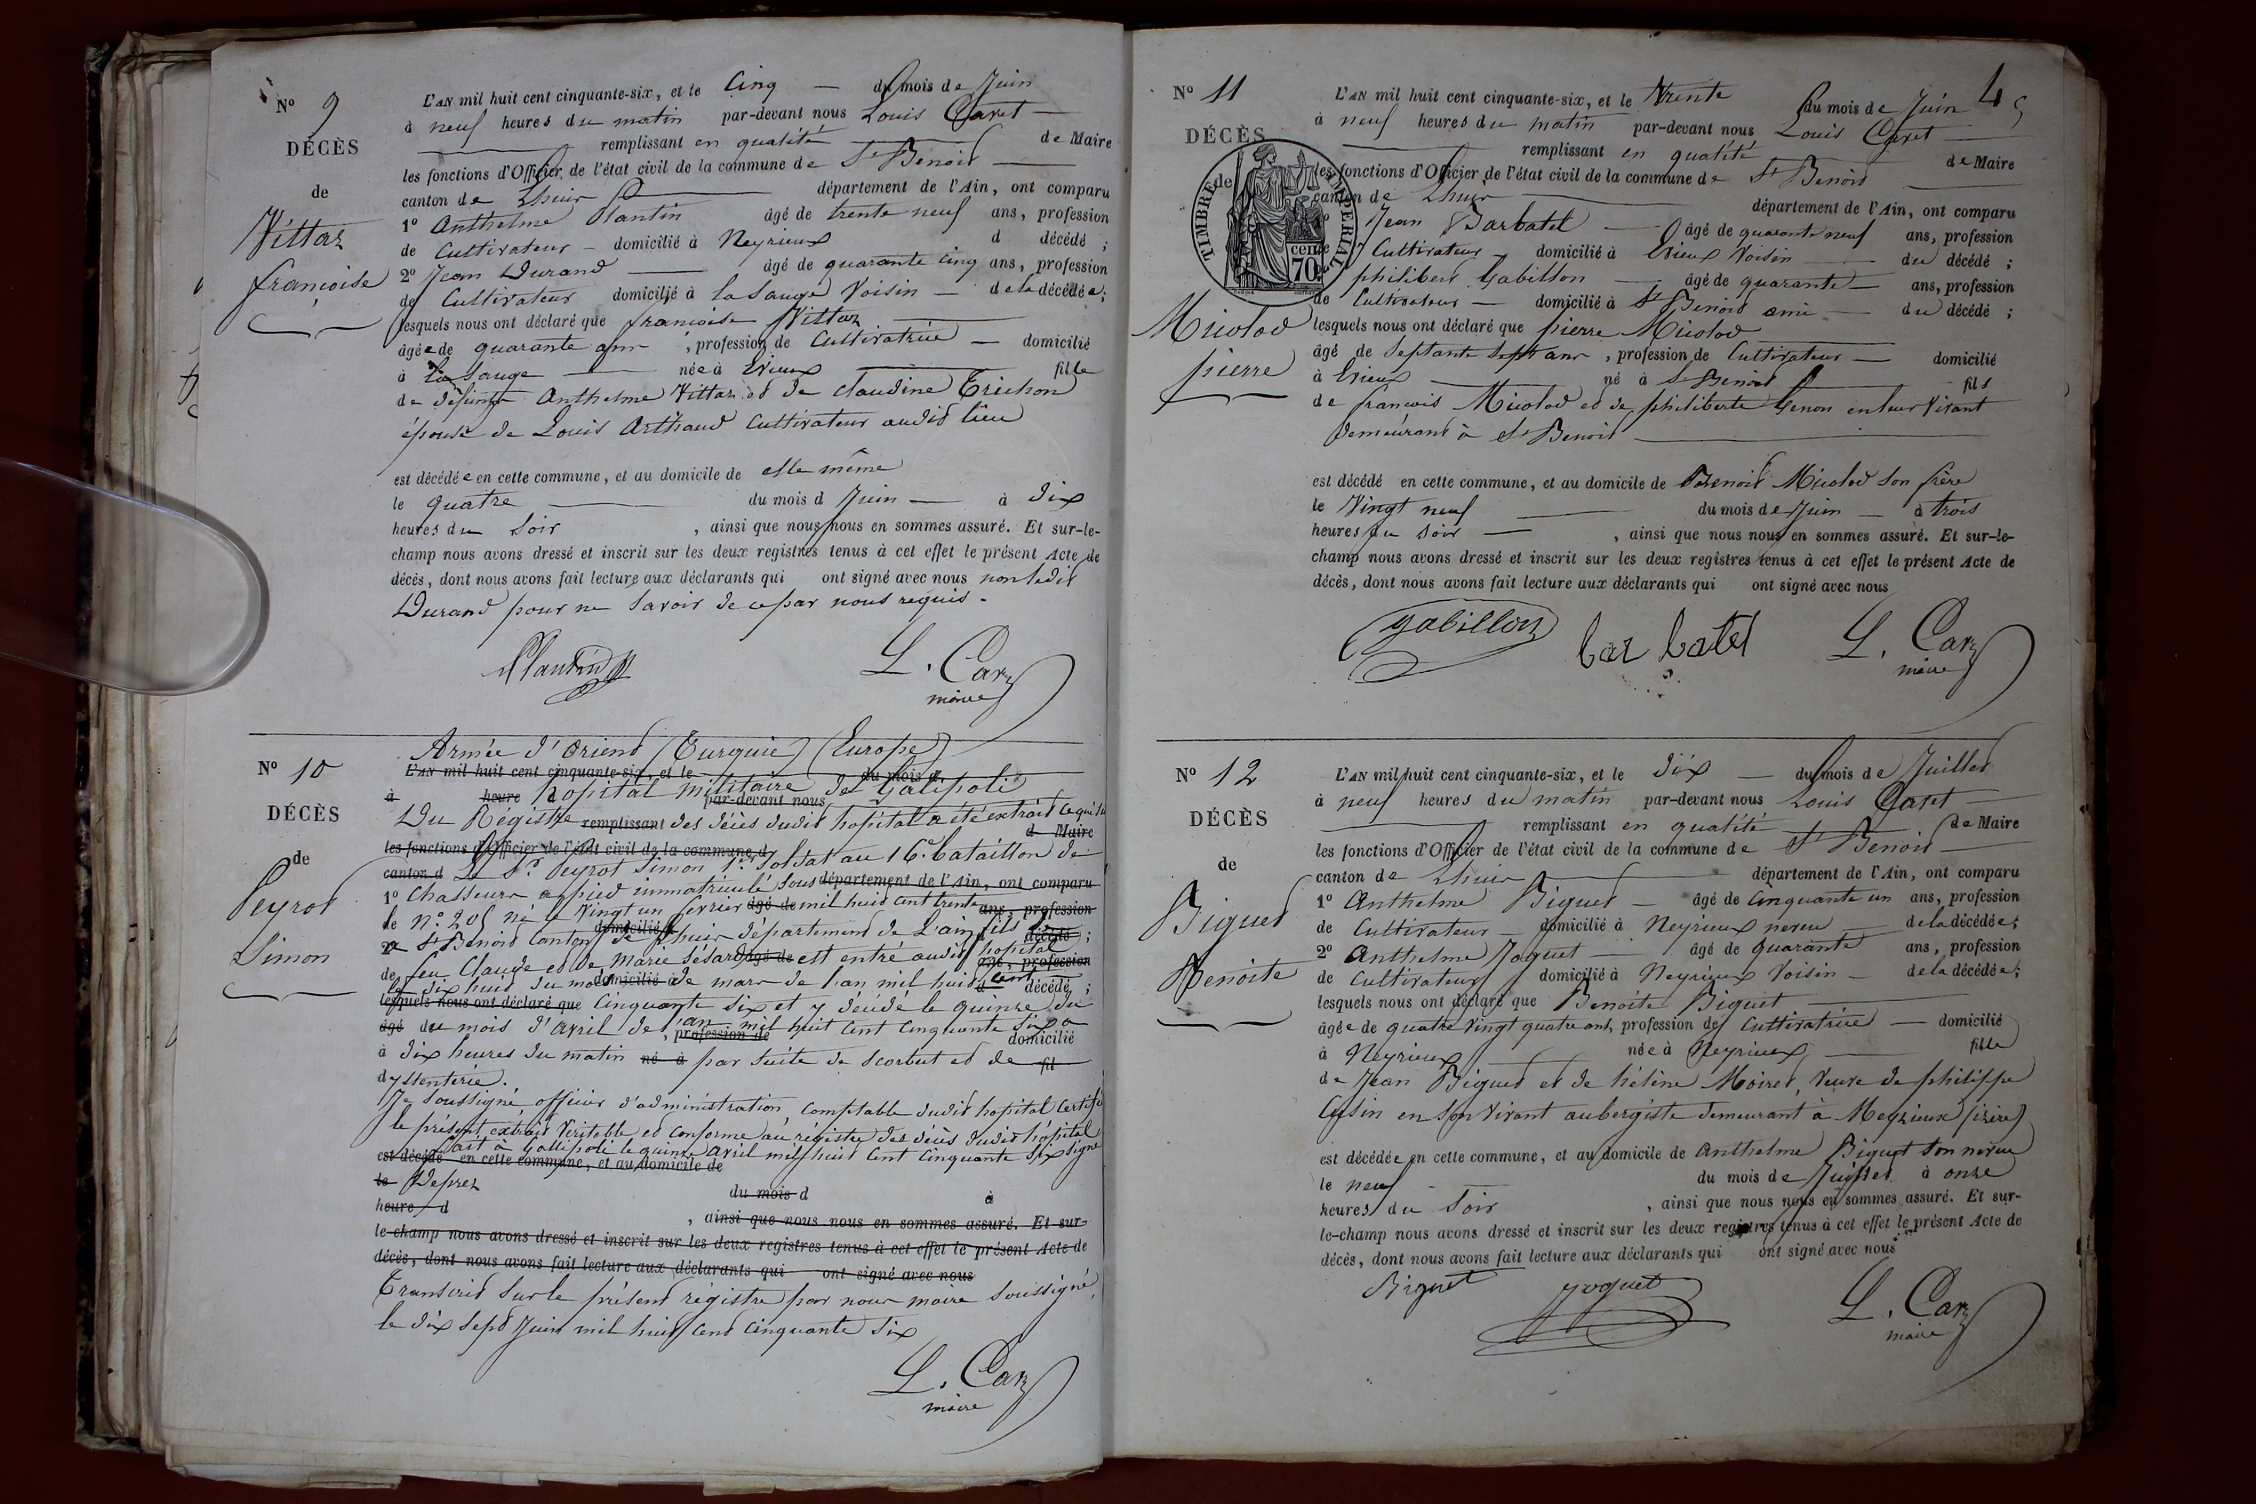 Nº 9
DÉCÈS
de
Vittaz
françoise
L'AN mil huit cent cinquante-six, et le Cinq — du mois de Juin
à neuf heures du matin par-devant nous Louis Caret —
remplissant en qualité de Maire
les fonctions d'Officier de l'état civil de la commune de St Benoit —
canton de Lhuis département de l'Ain, ont comparu
1º Anthelme Plantin âgé de trente neuf ans, profession
de Cultivateur — domicilié à Neyrieux d décédé ;
2º Jean Durand — âgé de quarante cinq ans, profession
de Cultivateur domicilié à la Sauge Voisin — de la décédée ;
lesquels nous ont déclaré que françoise Vittaz
âgée de quarante ans , profession de Cultivatrice — domicilié
à la Sauge — née à Evieux fille
de défunt Anthelme Vittaz et de Claudine Trichon
épouse de Louis Arthaud Cultivateur audit lieu
est décédée en cette commune, et au domicile de elle même
le quatre du mois d Juin — à dix
heures du Soir , ainsi que nous nous en sommes assuré. Et sur-le-
champ nous avons dressé et inscrit sur les deux registres tenus à cet effet le présent Acte de
décès, dont nous avons fait lecture aux déclarants qui ont signé avec nous non ledit
Durand pour ne Savoir de ce par nous requis.
Plantin
L. Caret
maire
Nº 10
DÉCÈS
de
Peyrot
Simon
Armée d'Orient (Turquie) (Europe)
L'AN mil huit cent cinquante-six, et le du mois d
à heure hopital militaire par-devant nous de Galipoli
Du Régistre remplissant des décès dudit hopital a été extrait ce qui suit
d Maire
les fonctions d'Officier de l'état civil de la commune d
canton d Le Sr. Peyrot Simon Soldat au 16e bataillon de
1º Chasseurs a pied immatriculé Sous département de l'Ain, ont comparu
le Nº 205 né le Vingt un fevrier âgé de mil huit cent trente ans, profession
2º a St Benoit Canton de Lhuis domicilié à département de L'ain fils décédé ;
de feu Claude et de Marie Césard âgé de est entré audit hopital ans, profession
le dix huit du mois domicilié à de mars de l'an mil huit cent d décédé ;
lesquels nous ont déclaré que Cinquante Six et y décédé le quinze du
âgé du mois d'avril de l'an mil huit cent cinquante six a
, profession de domicilié
à dix heures du matin né à par Suite de Scorbut et de fil
dyssenterie.
Je Soussigné officier d'administration, Comptable dudit hopital Certifie
le présent extrait Véritable et conforme au régistre des décès dudit hôpital
fait à Gallipoli le quinze avril mil huit Cent Cinquante Six Signé
est décédé en cette commune, et au domicile de
le Deprez du mois d à
heure d , ainsi que nous nous en sommes assuré. Et sur-
le-champ nous avons dressé et inscrit sur les deux registres tenus à cet effet le présent Acte de
décès, dont nous avons fait lecture aux déclarants qui ont signé avec nous
Transcrit Sur le présent régistre par nous maire Soussigné,
le dix Sept Juin mil huit cent cinquante Six
L. Caret
maire
4
Nº 11
DÉCÈS
de
TIMBRE IMPERIAL
70 cent
Micolod
pierre
L'AN mil huit cent cinquante-six, et le trente du mois de Juin
à neuf heures du matin par-devant nous Louis Caret —
remplissant en qualité de Maire
les fonctions d'Officier de l'état civil de la commune de St Benoit
canton de Lhuis département de l'Ain, ont comparu
1º Jean Barbatel — âgé de quarante neuf ans, profession
de Cultivateur domicilié à Evieux Voisin — du décédé ;
philibert Gabillon — âgé de quarante — ans, profession
de Cultivateur — domicilié à St Benoit ami — du décédé ;
lesquels nous ont déclaré que pierre Micolod
âgé de Septante Sept ans , profession de Cultivateur — domicilié
à Evieux né à St Benoit fils
de françois Micolod et de philiberte Genon en leur Vivant
demeurant à St Benoit
est décédé en cette commune, et au domicile de Benoit Micolod Son frère
le Vingt neuf du mois de Juin — à trois
heures du Soir — , ainsi que nous nous en sommes assuré. Et sur-le-
champ nous avons dressé et inscrit sur les deux registres tenus à cet effet le présent Acte de
décès, dont nous avons fait lecture aux déclarants qui ont signé avec nous
gabillon
bar batel
L. Caret
maire
Nº 12
DÉCÈS
de
Biguet
Benoite
L'AN mil huit cent cinquante-six, et le dix — du mois de Juillet
à neuf heures du matin par-devant nous Louis Caret —
remplissant en qualité de Maire
les fonctions d'Officier de l'état civil de la commune de St Benoit —
canton de Lhuis département de l'Ain, ont comparu
1º Anthelme Biguet — âgé de cinquante un ans, profession
de Cultivateur — domicilié à Neyrieux neveu — de la décédée ;
2º Anthelme Joguet — âgé de quarante ans, profession
de Cultivateur domicilié à Neyrieux Voisin — de la décédée ;
lesquels nous ont déclaré que Benoite Biguet
âgée de quatre Vingt quatre ans, profession de Cultivatrice — domicilié
à Neyrieux née à Neyrieux — fille
de Jean Biguet et de hélène Moiret, Veuve de philippe
Cusin en Son Vivant aubergiste demeurant à Meyzieux (isère)
est décédée en cette commune, et au domicile de Anthelme Biguet Son neveu
le neuf du mois de Juillet à onze
heures du Soir , ainsi que nous nous en sommes assuré. Et sur-
le-champ nous avons dressé et inscrit sur les deux registres tenus à cet effet le présent Acte de
décès, dont nous avons fait lecture aux déclarants qui ont signé avec nous
Biguet
joguet
L. Caret
maire